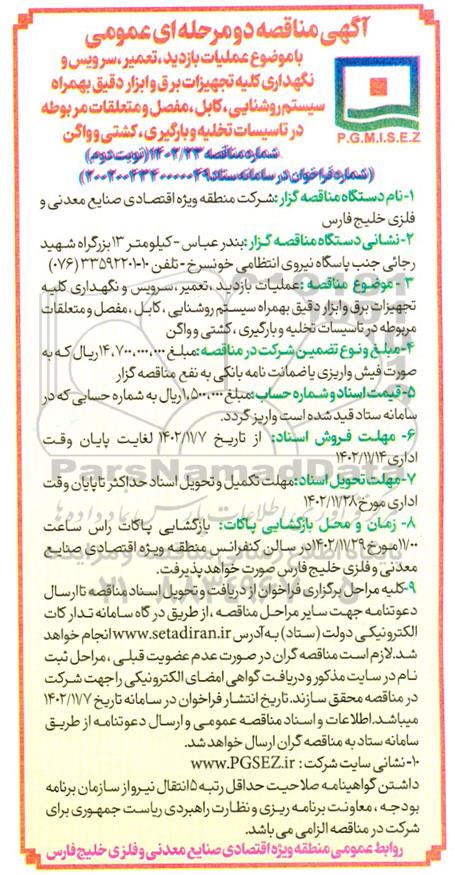 آگهی مناقصه دو مرحله ای عمومی
با موضوع عملیات بازدید، تعمیر، سرویس و
نگهداری کلیه تجهیزات برق و ابزار دقیق بهمراه
سیستم روشنایی، کابل، مفصل و متعلقات مربوطه
در تاسیسات تخلیه و بارگیری، کشتی و واگن
P.G.M.I.S.E.Z
شماره مناقصه ۱۴۰۲/۲۳ (نوبت دوم)
(شماره فراخوان در سامانه ستاد ۲۰۰۲۰۰۴۳۴۰۰۰۰۰۴۹)
۱- نام دستگاه مناقصه گزار: شرکت منطقه ویژه اقتصادی صنایع معدنی و
فلزی خلیج فارس
۲- نشانی دستگاه مناقصه گزار: بندر عباس - کیلومتر ۱۳ بزرگراه شهید
رجائی جنب پاسگاه نیروی انتظامی خونسرخ - تلفن ۱۰-۳۳۵۹۲۲۰۱ (۰۷۶)
۳- موضوع مناقصه: عملیات بازدید، تعمیر، سرویس و نگهداری کلیه
تجهیزات برق و ابزار دقیق بهمراه سیستم روشنایی، کابل، مفصل و متعلقات
مربوطه در تاسیسات تخلیه و بارگیری، کشتی و واگن
۴- مبلغ و نوع تضمین شرکت در مناقصه: مبلغ ۱۴,۷۰۰,۰۰۰,۰۰۰ ریال که به
صورت فیش واریزی یا ضمانت نامه بانکی به نفع مناقصه گزار
۵- قیمت اسناد و شماره حساب: مبلغ ۱,۵۰۰,۰۰۰ ریال به شماره حسابی که در
سامانه ستاد قید شده است واریز گردد.
۶- مهلت فروش اسناد: از تاریخ ۱۴۰۲/۱۱/۷ لغایت پایان وقت
اداری ۱۴۰۲/۱۱/۱۴
۷- مهلت تحویل اسناد: مهلت تکمیل و تحویل اسناد حداکثر تا پایان وقت
اداری مورخ ۱۴۰۲/۱۱/۲۸
۸- زمان و محل بازگشایی پاکات: بازگشایی پاکات راس ساعت
۱۷۰۰ مورخ ۱۴۰۲/۱۱/۲۹ در سالن کنفرانس منطقه ویژه اقتصادی صنایع
معدنی و فلزی خلیج فارس صورت خواهد پذیرفت.
۹- کلیه مراحل برگزاری فراخوان از دریافت و تحویل اسناد مناقصه تا ارسال
دعوتنامه جهت سایر مراحل مناقصه، از طریق درگاه سامانه تدارکات
الکترونیکی دولت (ستاد) به آدرس www.setadiran.ir انجام خواهد
شد. لازم است مناقصه گران در صورت عدم عضویت قبلی، مراحل ثبت
نام در سایت مذکور و دریافت گواهی امضای الکترونیکی را جهت شرکت
در مناقصه محقق سازند. تاریخ انتشار فراخوان در سامانه تاریخ ۱۴۰۲/۱۱/۷
میباشد. اطلاعات و اسناد مناقصه عمومی و ارسال دعوتنامه از طریق
سامانه ستاد به مناقصه گران ارسال خواهد شد.
۱۰- نشانی سایت شرکت: www.PGSEZ.ir
داشتن گواهینامه صلاحیت حداقل رتبه ۵ انتقال نیرو از سازمان برنامه
بودجه، معاونت برنامه ریزی و نظارت راهبردی ریاست جمهوری برای
شرکت در مناقصه الزامی می باشد.
روابط عمومی منطقه ویژه اقتصادی صنایع معدنی و فلزی خلیج فارس
ParsNamadData